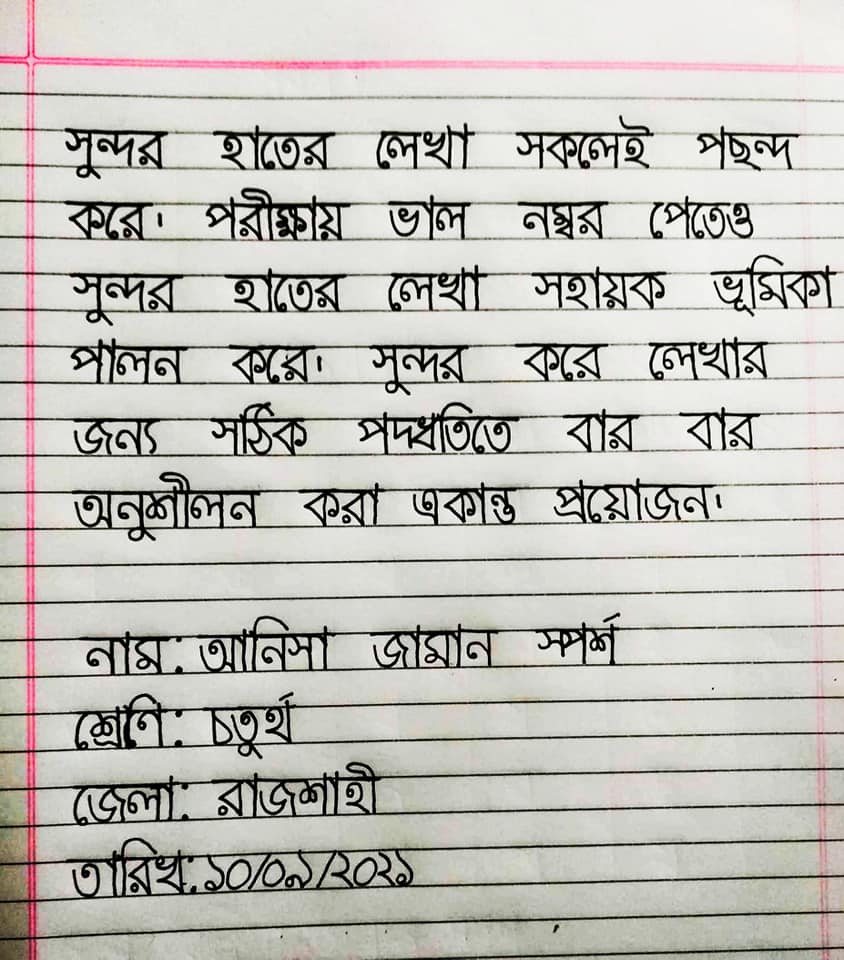 সুন্দর হাতের লেখা সকলেই পছন্দ
করে। পরীক্ষায় ভাল নম্বর পেতেও
সুন্দর হাতের লেখা সহায়ক ভূমিকা
পালন করে। সুন্দর করে লেখার
জন্য সঠিক পদ্ধতিতে বার বার
অনুশীলন করা একান্ত প্রয়োজন।
নাম: আনিসা জামান স্পর্শ
শ্রেণি: চতুর্থ
জেলা: রাজশাহী
তারিখ: ১০/০৯/২০২১